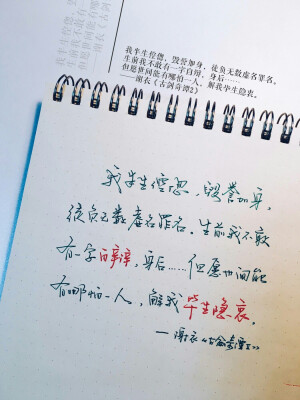 我半生倥偬，毁誉加身，徒负无数虚名罪名。
生前我不敢有一字自辩，身后……
但愿世间能有哪怕一人，解我毕生隐衷。
——谢衣《古剑奇谭2》
我半生，毁誉加身，
徒负无数虚名罪名，生前我不敢
有一字自辩，身后……但愿世间能
有哪怕一人，解我毕生隐衷。
—谢衣《古剑奇谭Ⅱ》